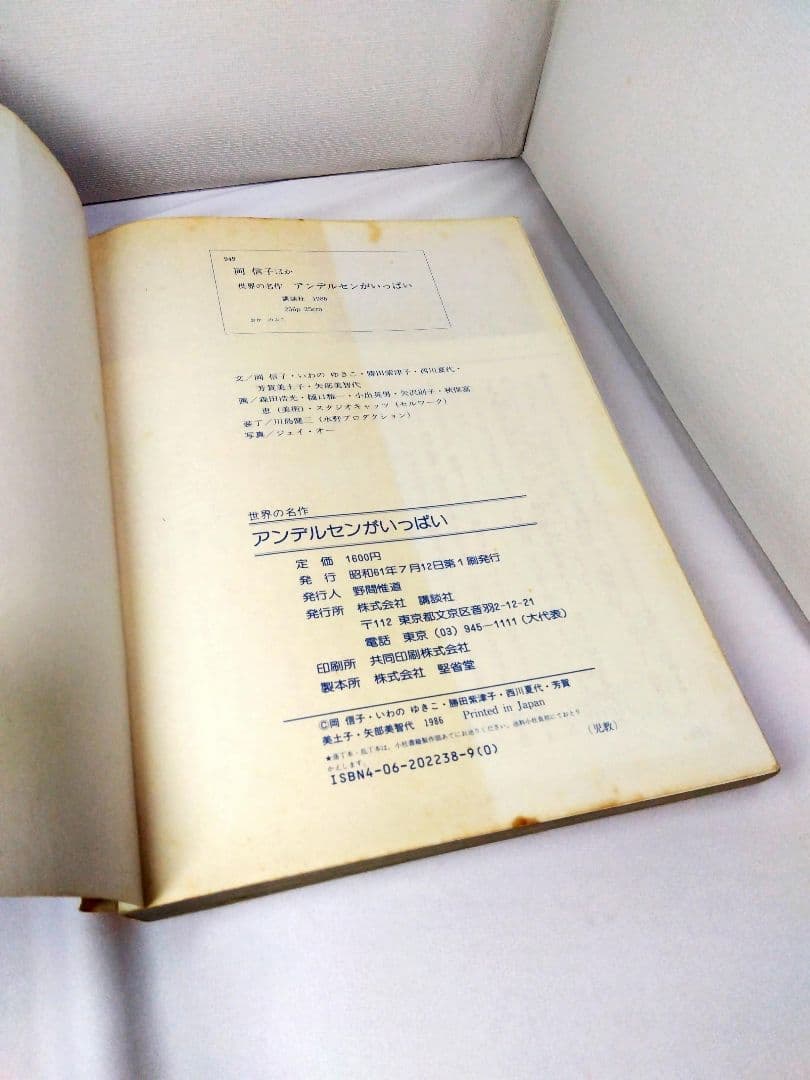 949
岡 信子ほか
世界の名作 アンデルセンがいっぱい
講談社 1986
256p 25cm
文/岡 信子・いわの ゆきこ・勝田紫津子・西川夏代・
芳賀美土子・矢部美智代
画/森田浩光・樋口雅一・小出英男・矢沢則子・秋保富
恵(美術)・スタジオキャッツ(セルワーク)
装丁/川島健二(水野プロダクション)
写真/ジェイ・オー
世界の名作
アンデルセンがいっぱい
定 価 1600円
発 行 昭和61年7月12日第1刷発行
発行人 野間惟道
発行所 株式会社 講談社
〒112 東京都文京区音羽2-12-21
電話 東京(03)945—1111(大代表)
印刷所 共同印刷株式会社
製本所 株式会社 堅省堂
©岡 信子・いわの ゆきこ・勝田紫津子・西川夏代・芳賀
美土子・矢部美智代 1986 Printed in Japan
★落丁本・乱丁本は、小社書籍製作部あてにお送りください。送料小社負担にておとり
かえします。
ISBN4-06-202238-9(0)
(児教)